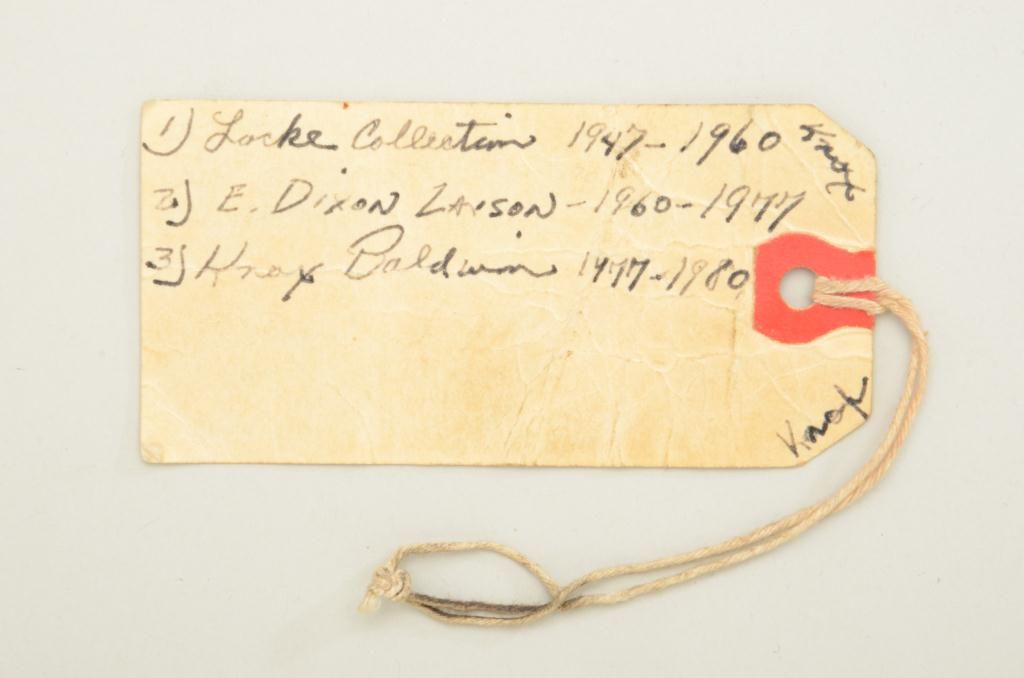 1) Locke Collection 1947-1960
Knox
2) E. Dixon Larson -1960-1977
3) Knox Baldwin 1977-1980
Knox